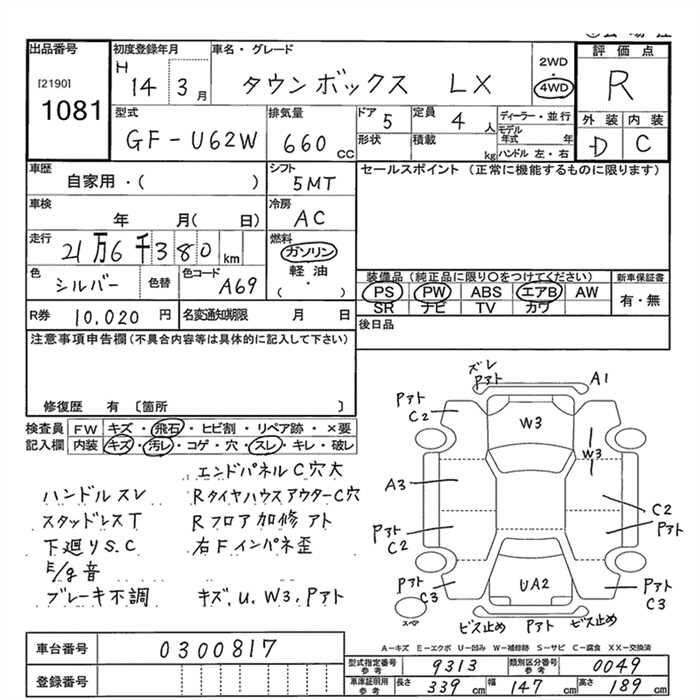 出品番号
[2190]
1081
初度登録年月
H
14 3 月
車名・グレード
タウンボックス LX
2WD
4WD
評価点
R
型式
GF-U62W
排気量
660 CC
ドア
5
定員
4 人
ディーラー・並行
形状
積載
kg
モデル年式 年
ハンドル 左・右
外装 内装
D C
車歴
自家用・( )
シフト
5MT
セールスポイント (正常に機能するものに限ります)
車検
年 月( 日)
冷房
AC
走行
21万6千380 km
燃料
ガソリン
軽油
( ・ )
色
シルバー
色替
色コード
A69
装備品 (純正品に限り○をつけてください)
新車保証書
PS PW ABS エアB AW
有・無
SR ナビ TV カワ
R券 10,020 円
名変通知期限 月 日
後日品
注意事項申告欄 (不具合内容等は具体的に記入して下さい)
修復歴 有 〔箇所
検査員 FW キズ・飛石・ヒビ割・リペア跡・×要
記入欄 内装 キズ・汚レ・コゲ・穴・スレ・キレ・破レ
エンドパネルC穴大
ハンドルスレ RタイヤハウスアウターC穴
スタッドレスT Rフロア加修アト
下廻りS.C 右Fインパネ歪
E/g音
ブレーキ不調 キズ、U、W3、Pアト
ズレ
Pアト
A1
Pアト
C2
W3
W3
A3
C2
Pアト
C2
Pアト
Pアト
C3
UA2
Pアト
C3
スペア
ビス止め Pアト ビス止め
A-キズ E-エクボ U-凹み W-補修跡 S-サビ C-腐食 XX-交換済
車台番号 0300817
登録番号
型式指定番号
参考
9313
類別区分番号
参考
0049
車庫証明用
参考
長さ 339 cm
幅 147 cm
高さ 189 cm